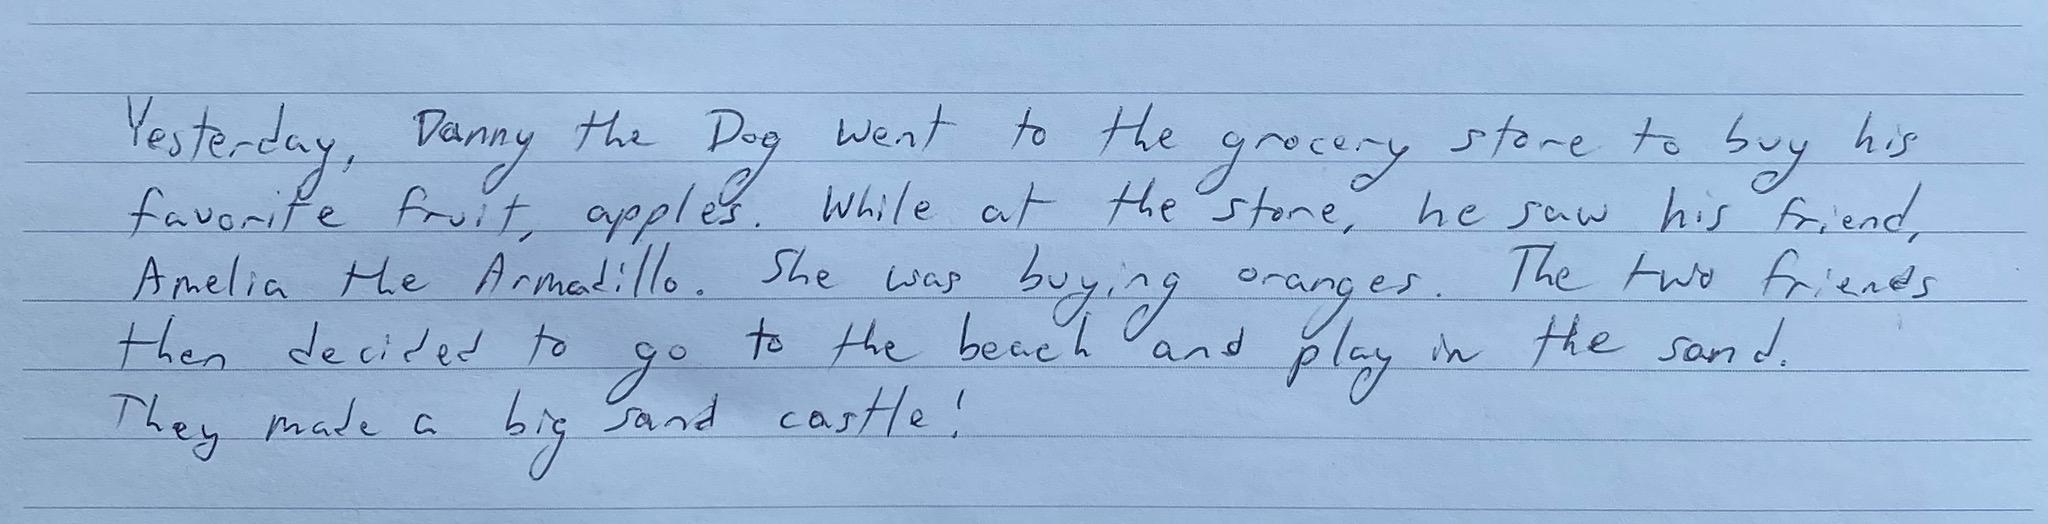 Yesterday, Danny the Dog went to the grocery store to buy his
favorite fruit, apples. While at the store, he saw his friend,
Amelia the Armadillo. She was buying oranges. The two friends
then decided to go to the beach and play in the sand.
They made a big sand castle!